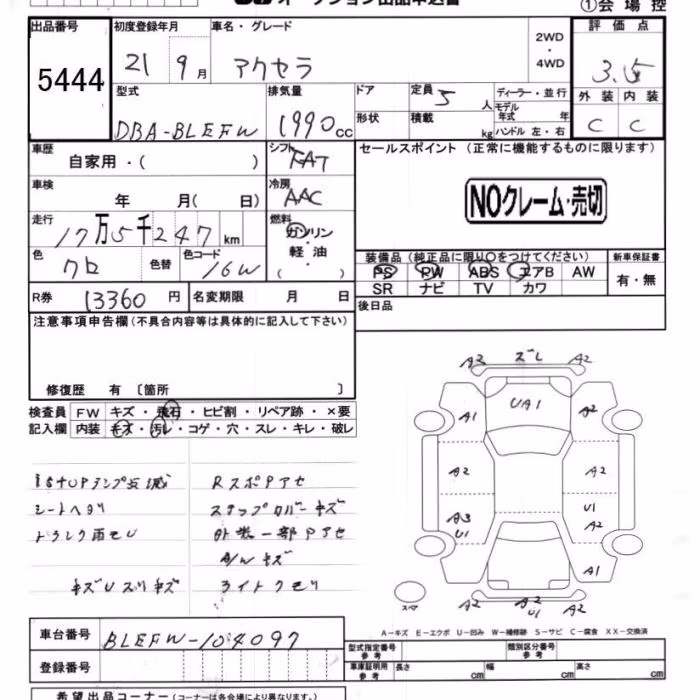 オークション出品申込書
①会場控
出品番号
5444
初度登録年月
21 9月
車名・グレード
アクセラ
2WD
・
4WD
評価点
3.5
外装 内装
C C
型式
DBA-BLEFW
排気量
1990cc
ドア
形状
定員 5 人
積載 kg
ディーラー・並行
モデル
年式 年
ハンドル 左・右
車歴
自家用・( )
シフト
FAT
セールスポイント (正常に機能するものに限ります)
NOクレーム・売切
車検
年 月( 日)
冷房
AAC
走行
17万5千247km
燃料
ガソリン
・
軽油
( )
色
クロ
色替
色コード
16W
装備品 (純正品に限り○をつけてください)
新車保証書
PS PW ABS エアB AW
SR ナビ TV カワ
有・無
R券 13360 円
名変期限 月 日
後日品
注意事項申告欄(不具合内容等は具体的に記入して下さい)
修復歴 有 〔箇所 〕
検査員
記入欄
FW キズ・飛石・ヒビ割・リペア跡・×要
内装 キズ・汚レ・コゲ・穴・スレ・キレ・破レ
シートヘタリ
RスポPアセ
ステップカバーキズ
外装一部Pアセ
A/Wキズ
ライトクモリ
A2 ズレ A2
A1 UA1 A2
A2 A2
A3 U1
U1 A2
A1
A2 A2 U1 A2
スペア
A-キズ E-エクボ U-凹み W-補修跡 S-サビ C-腐食 XX-交換済
車台番号
BLEFW-104097
登録番号
型式指定番号
参考
類別区分番号
参考
車庫証明用
参考
長さ cm 幅 cm 高さ cm
希望出品コーナー(コーナーは各会場により異なります。)